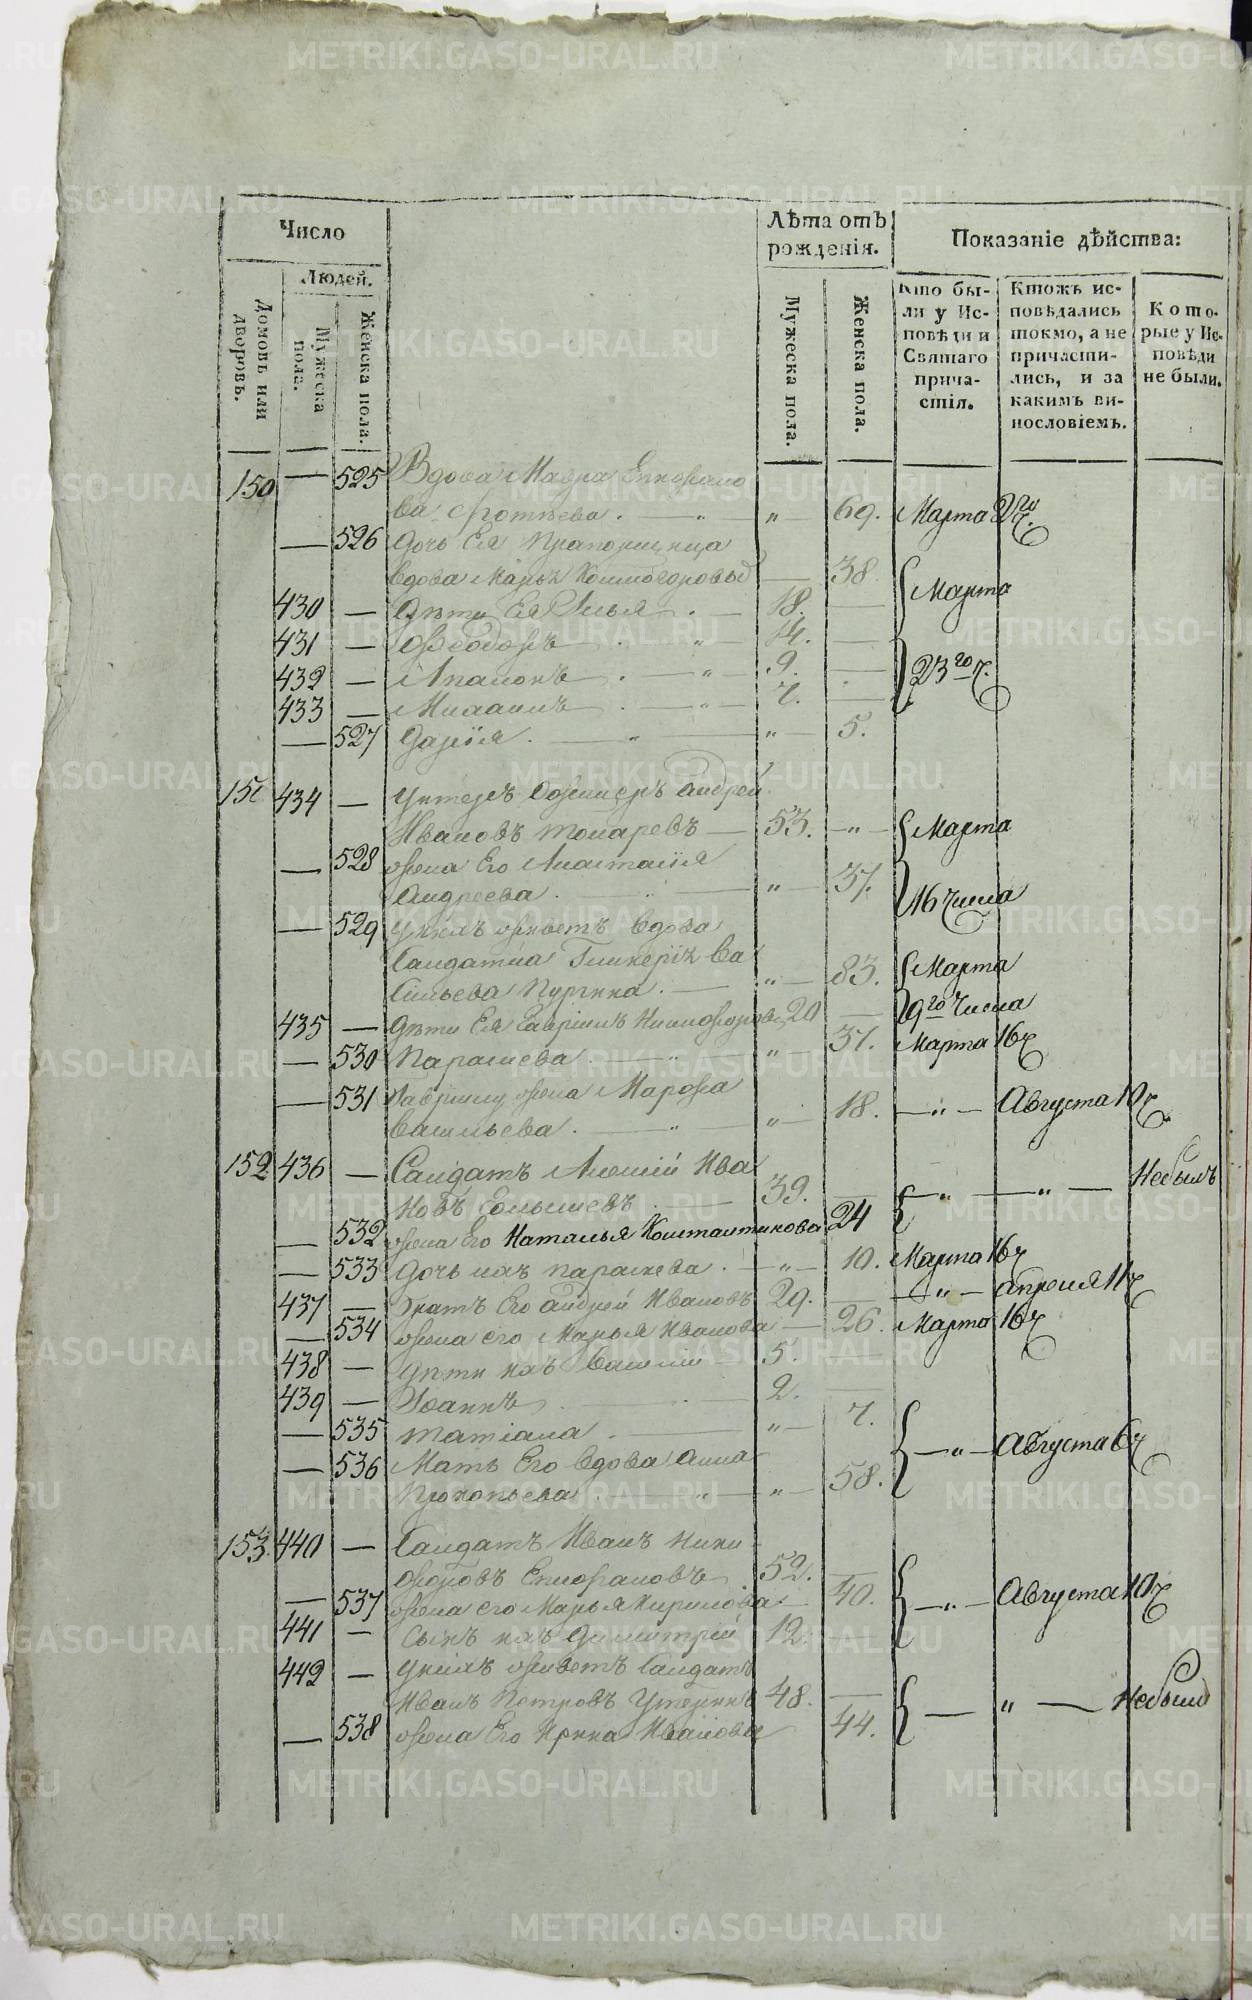 Число
Людей.
Домовъ или дворовъ.
Мужеска пола.
Женска пола.
Лѣта отъ рожденія.
Мужеска пола.
Женска пола.
Показаніе дѣйства:
Кто были у Исповѣди и Святаго причастія.
Ктожъ исповѣдались токмо, а не причастились, и за какимъ винословіемъ.
Которые у Исповѣди не были.
150 — 525 Вдова Мавра
ва — " — " — 69. Марта 2го ч.
— 526 дочь Ея Прапорщица
вдова Марья — 38. Марта
430 — дѣти Ея Илья . — 18. —
431 — Ѳеодоръ . — " 14. — 23го ч.
432 — Аполонъ . — " — 9. —
433 — Михаилъ . — " — 7. —
— 527 Дарія . — " — " — 5.
151 434 — Унтеръ Офицеръ Андрей
Ивановъ Токаревъ — 53. — " — Марта
— 528 жена Его Анастасія
Андреева . — " — 37. 16 числа
— 529 у нихъ живетъ вдова
Солдатка Гликерія Ва
сильева Пургина . — " — 83. Марта
9го числа
435 — дѣти Ея Гавріилъ Никифоровъ 20 —
— 530 Парасковья . — " — " — 37. Марта 16 ч
— 531 Гавріилу жена Марфа
Васильева . — " — " — 18. — " — Августа 10 ч
152 436 — Солдатъ Алексій Ива
новъ — 39. — " — " — Небылъ
— 532 жена Его Наталья Константинова 24
— 533 дочь ихъ Параскева . — " — 10. Марта 16 ч
437 — братъ Его Андрей Ивановъ 29. — — " — Апреля 11 ч
— 534 жена его Марья Иванова — 26. Марта 16 ч
438 — дѣти ихъ Василій — 5. —
439 — Іоаннъ . — 2. —
— 535 Татіана . — " — 7.
— " — Августа 6 ч
— 536 Мать Его вдова Анна
Прокопьева . — " — " — 58.
153 440 — Солдатъ Иванъ Ники-
форовъ Епифановъ 52. —
— 537 жена его Марья Кирилова — 40. — " — Августа 10 ч
441 — сынъ ихъ Димитрій 12. —
442 — у нихъ живетъ Солдатъ
Иванъ Петровъ 48. — — " — Небыли
— 538 жена Его Ирина Иванова 44.
METRIKI.GASO-URAL.RU